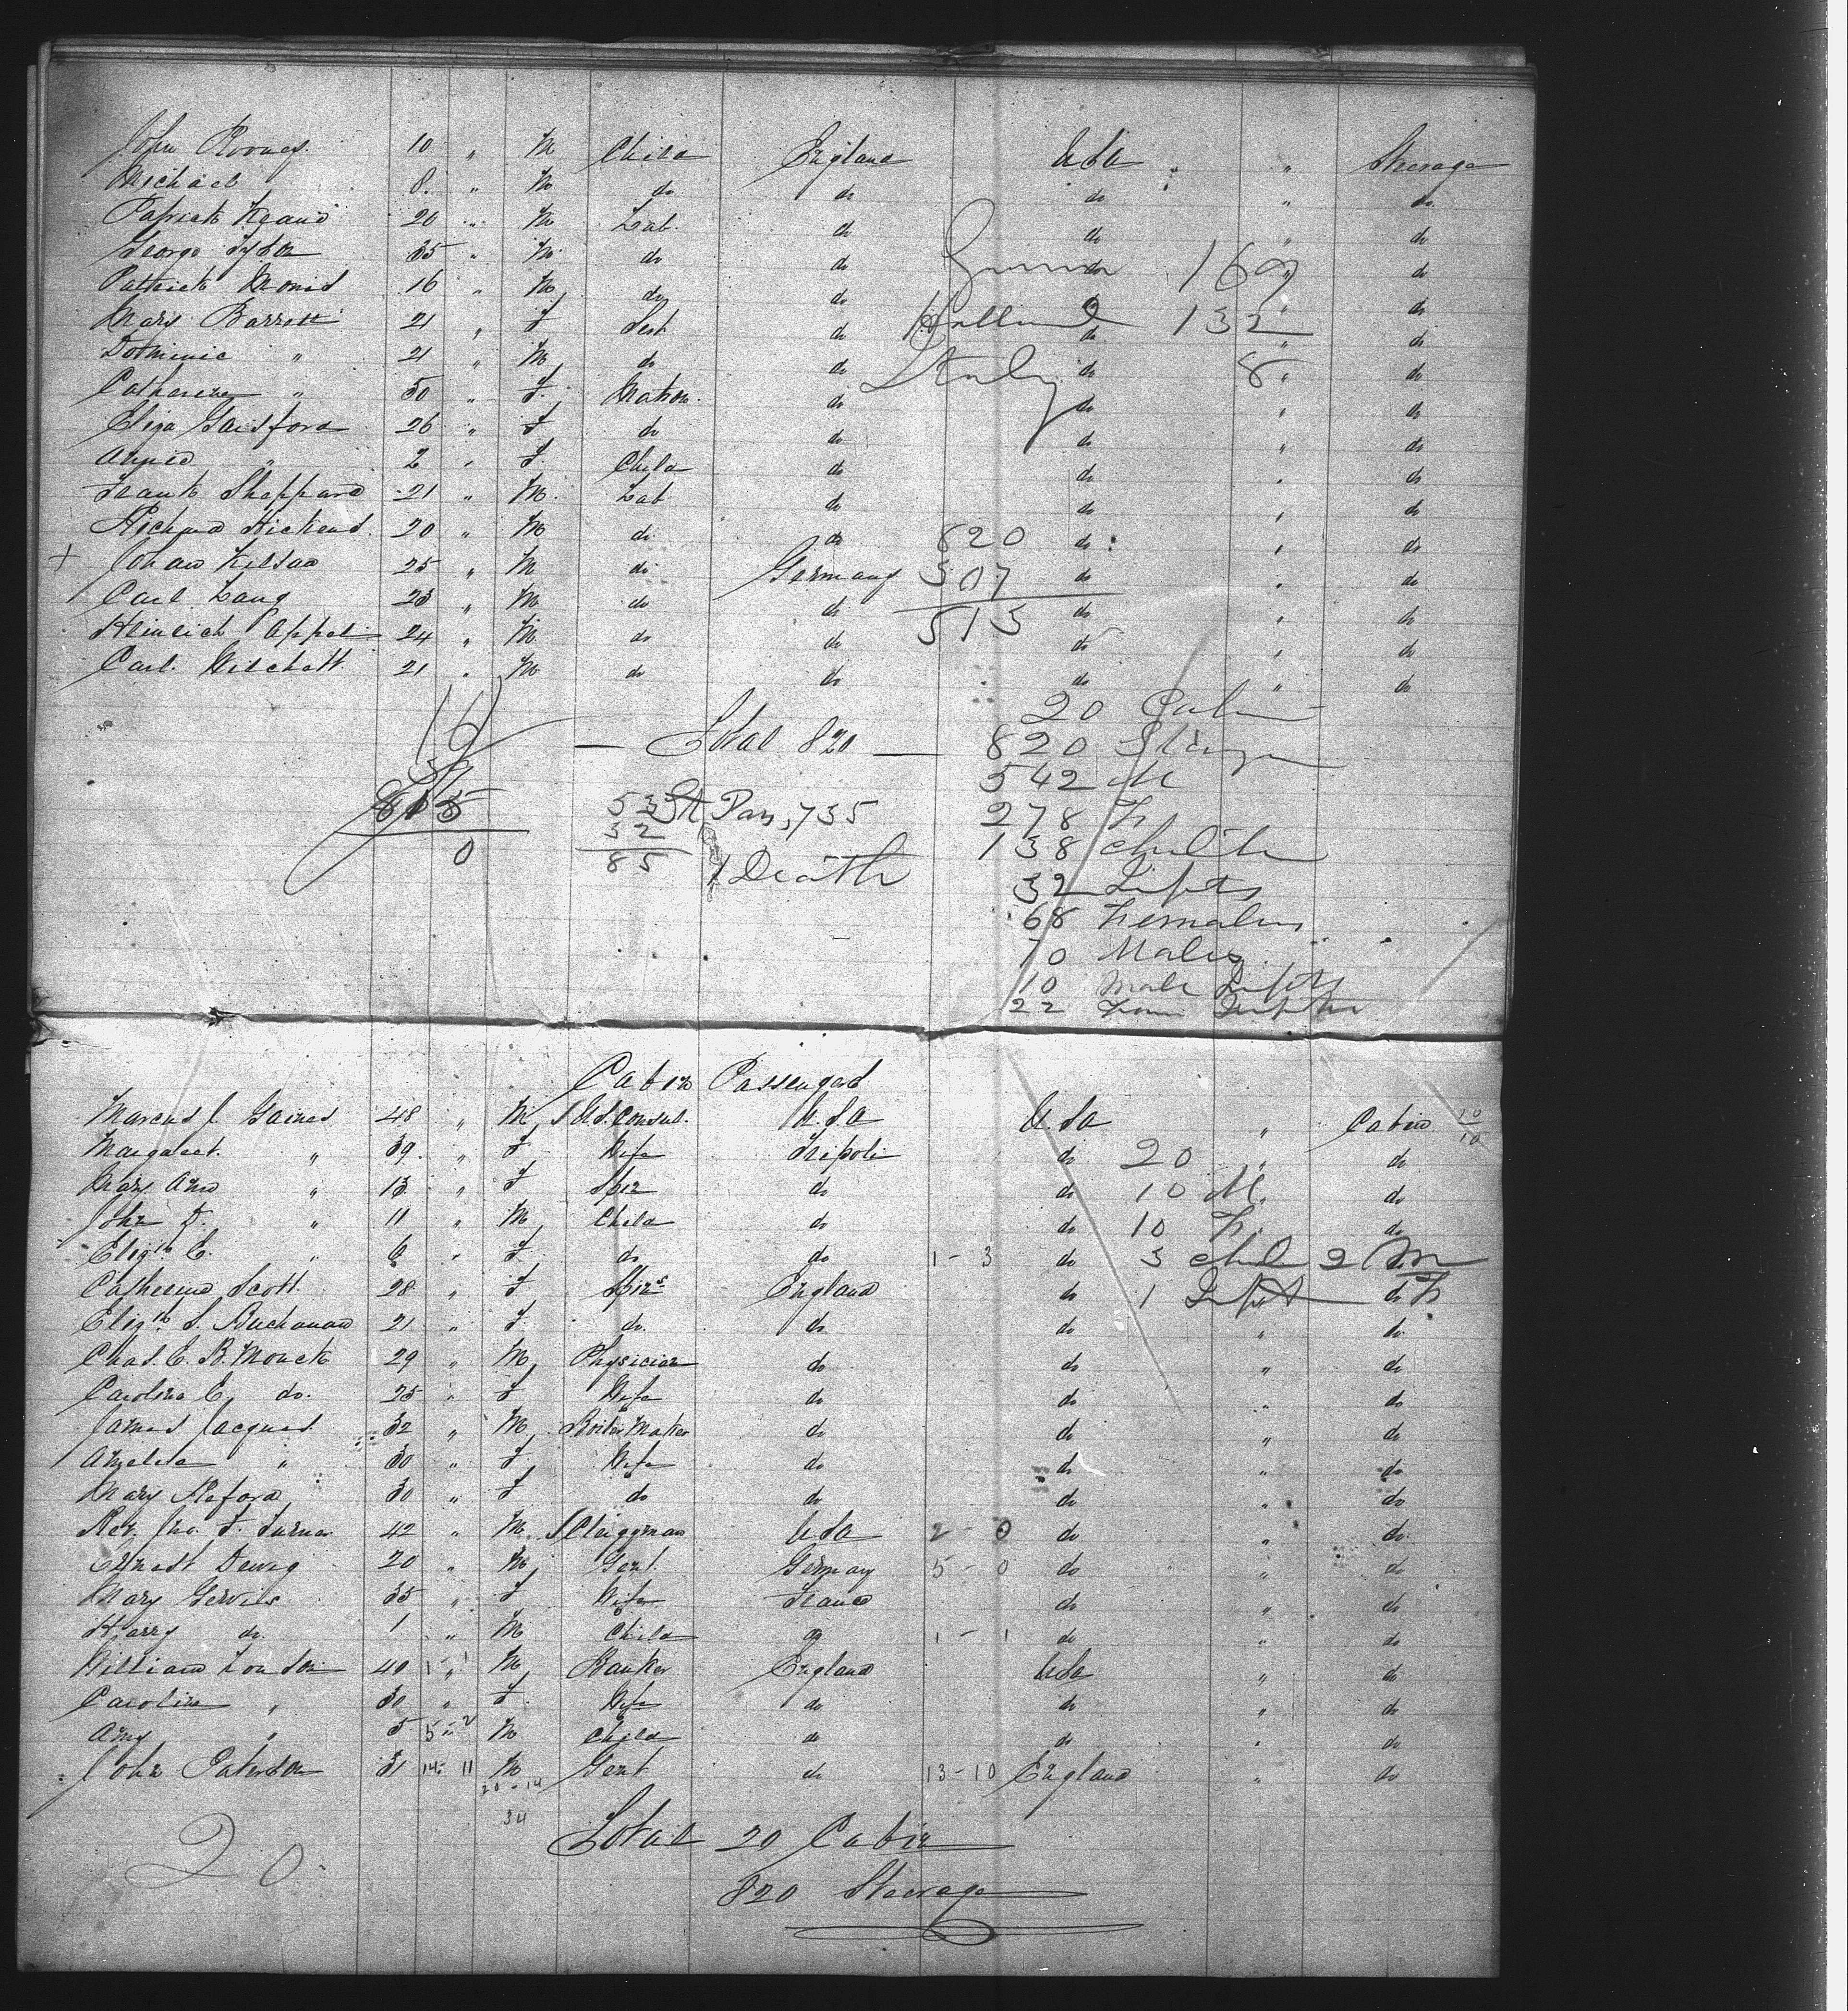 John Rooney 10 " M Child England USA " Steerage
Michael 8 " M do do do " do
Patrick Keand 20 " M Lab. do do " do
George Tyson 35 " M do do do " do
Patrick 16 " M do do do " do
Germ 169
Mary Barrett 21 " F Sert do do " do
Holland 132
Dominic " 21 " M do do do " do
Italy 8
Catherine " 50 " F Matron do do " do
Eliza Gaisford 26 " F do do do " do
Annie " 2 " F Child do do " do
Frank Sheppard 21 " M Lab do do " do
Richard 20 " M do do do " do
820
+ Johan 25 " M do Germany do " do
307
Carl Lang 23 " M do do do " do
513
Heinrich Appel 24 " M do do do " do
Carl 21 " M do do do " do
20 Cabin
— Total 820 —
820 Steerage
542 M
815
0
53 St Pas, 735
32
85
1 Death
278 F
138 children
32 Infts
68 Females
70 Males
10 Male Infts
22 Fem Infts
Cabin Passengers
Marcus J. Gaines 48 " M U.S. Consul. U.S.A U.S.A " Cabin 10/10
Margaret " 39 " F Wife Tripoli do 20 " do
Mary Ann " 13 " F Spin do do 10 M. do
John D. " 11 " M Child do do 10 F. do
Elizth C. " 6 " F do do 1-3 do 3 chil 2 M
Catherine Scott 28 " F Spins England do 1 Inft do F
Elizth S. Buchanan 21 " F do. do do " do
Chas. C. B. Monck 29 " M Physician do do " do
Caroline C. do. 25 " F Wife do do " do
James Jacques 32 " M Boiler Maker do do " do
Amelia " 30 " F Wife do do " do
Mary Reford 30 " F do do do " do
Rev. Jno. F. Turner 42 " M Clergyman USA 2-0 do " do
Ernest Dewig 20 " M Gent. Germany 5-0 do " do
Mary Gervis 35 " F Wife France do " do
Harry do. 1 " M Child do 1-1 do " do
William London 40 1-1 " M Banker England USA " do
Caroline " 30 " F Wife do do " do
Amy " 5 5-2 M Child do do " do
John Paterson 31 14-11 M Gent do 13-10 England " do
20-14
34
Total 20 Cabin
20
820 Steerage